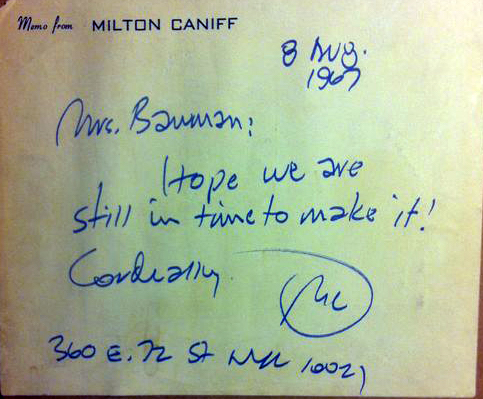 Memo from MILTON CANIFF
8 Aug.
1967
Mrs. Bauman:
Hope we are
still in time to make it!
Cordially
MC
360 E. 72 St NYC 10021